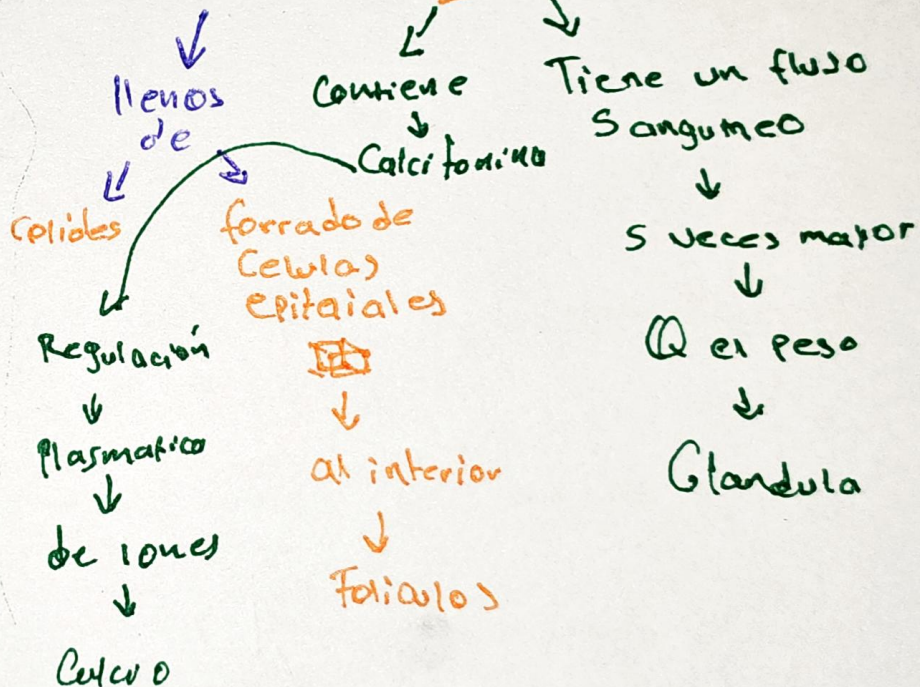 llenos
de
Colides
forrado de
Celulas
epitaiales
al interior
Foliculos
Contiene
Calcitonina
Regulación
Plasmatico
de iones
Calcio
Tiene un flujo
Sanguineo
5 veces mayor
Q el peso
Glandula